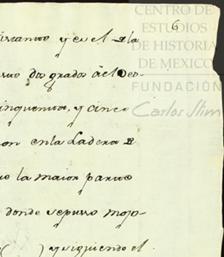 CENTRO DE
ESTUDIOS
DE HISTORIA
DE MEXICO
FUNDACIÓN
Carlos Slim
6
y en el la
dos grados
cinquenta, y cinco
on en la Ladera
la maior parte
donde se puso mojo-
y siguiendo el